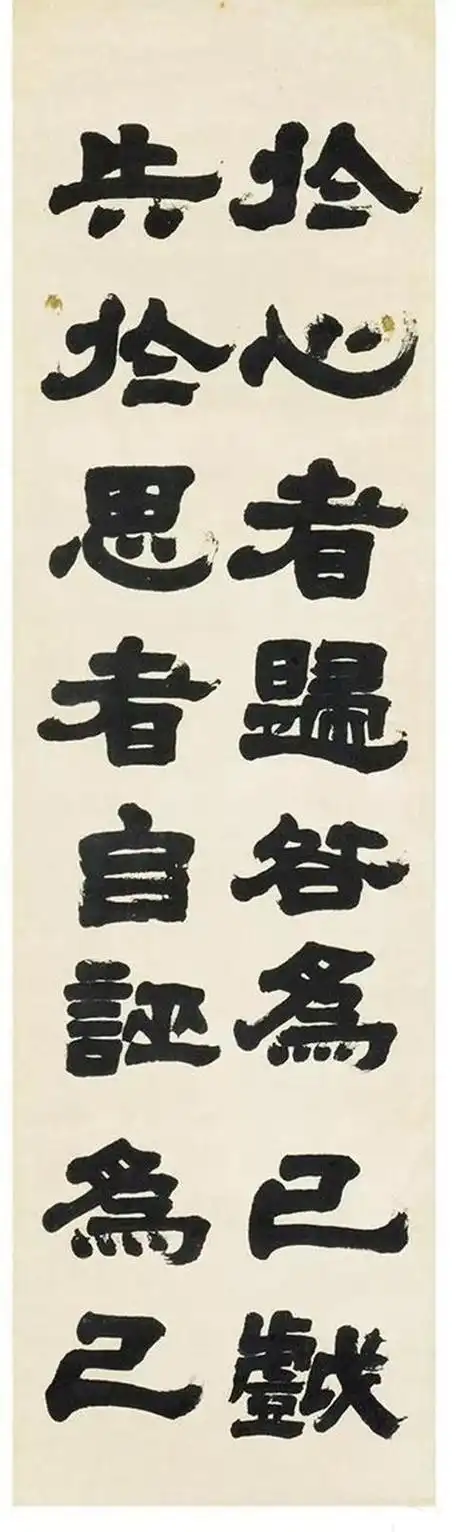 於心者歸咎爲己戲
失於思者自誣爲己